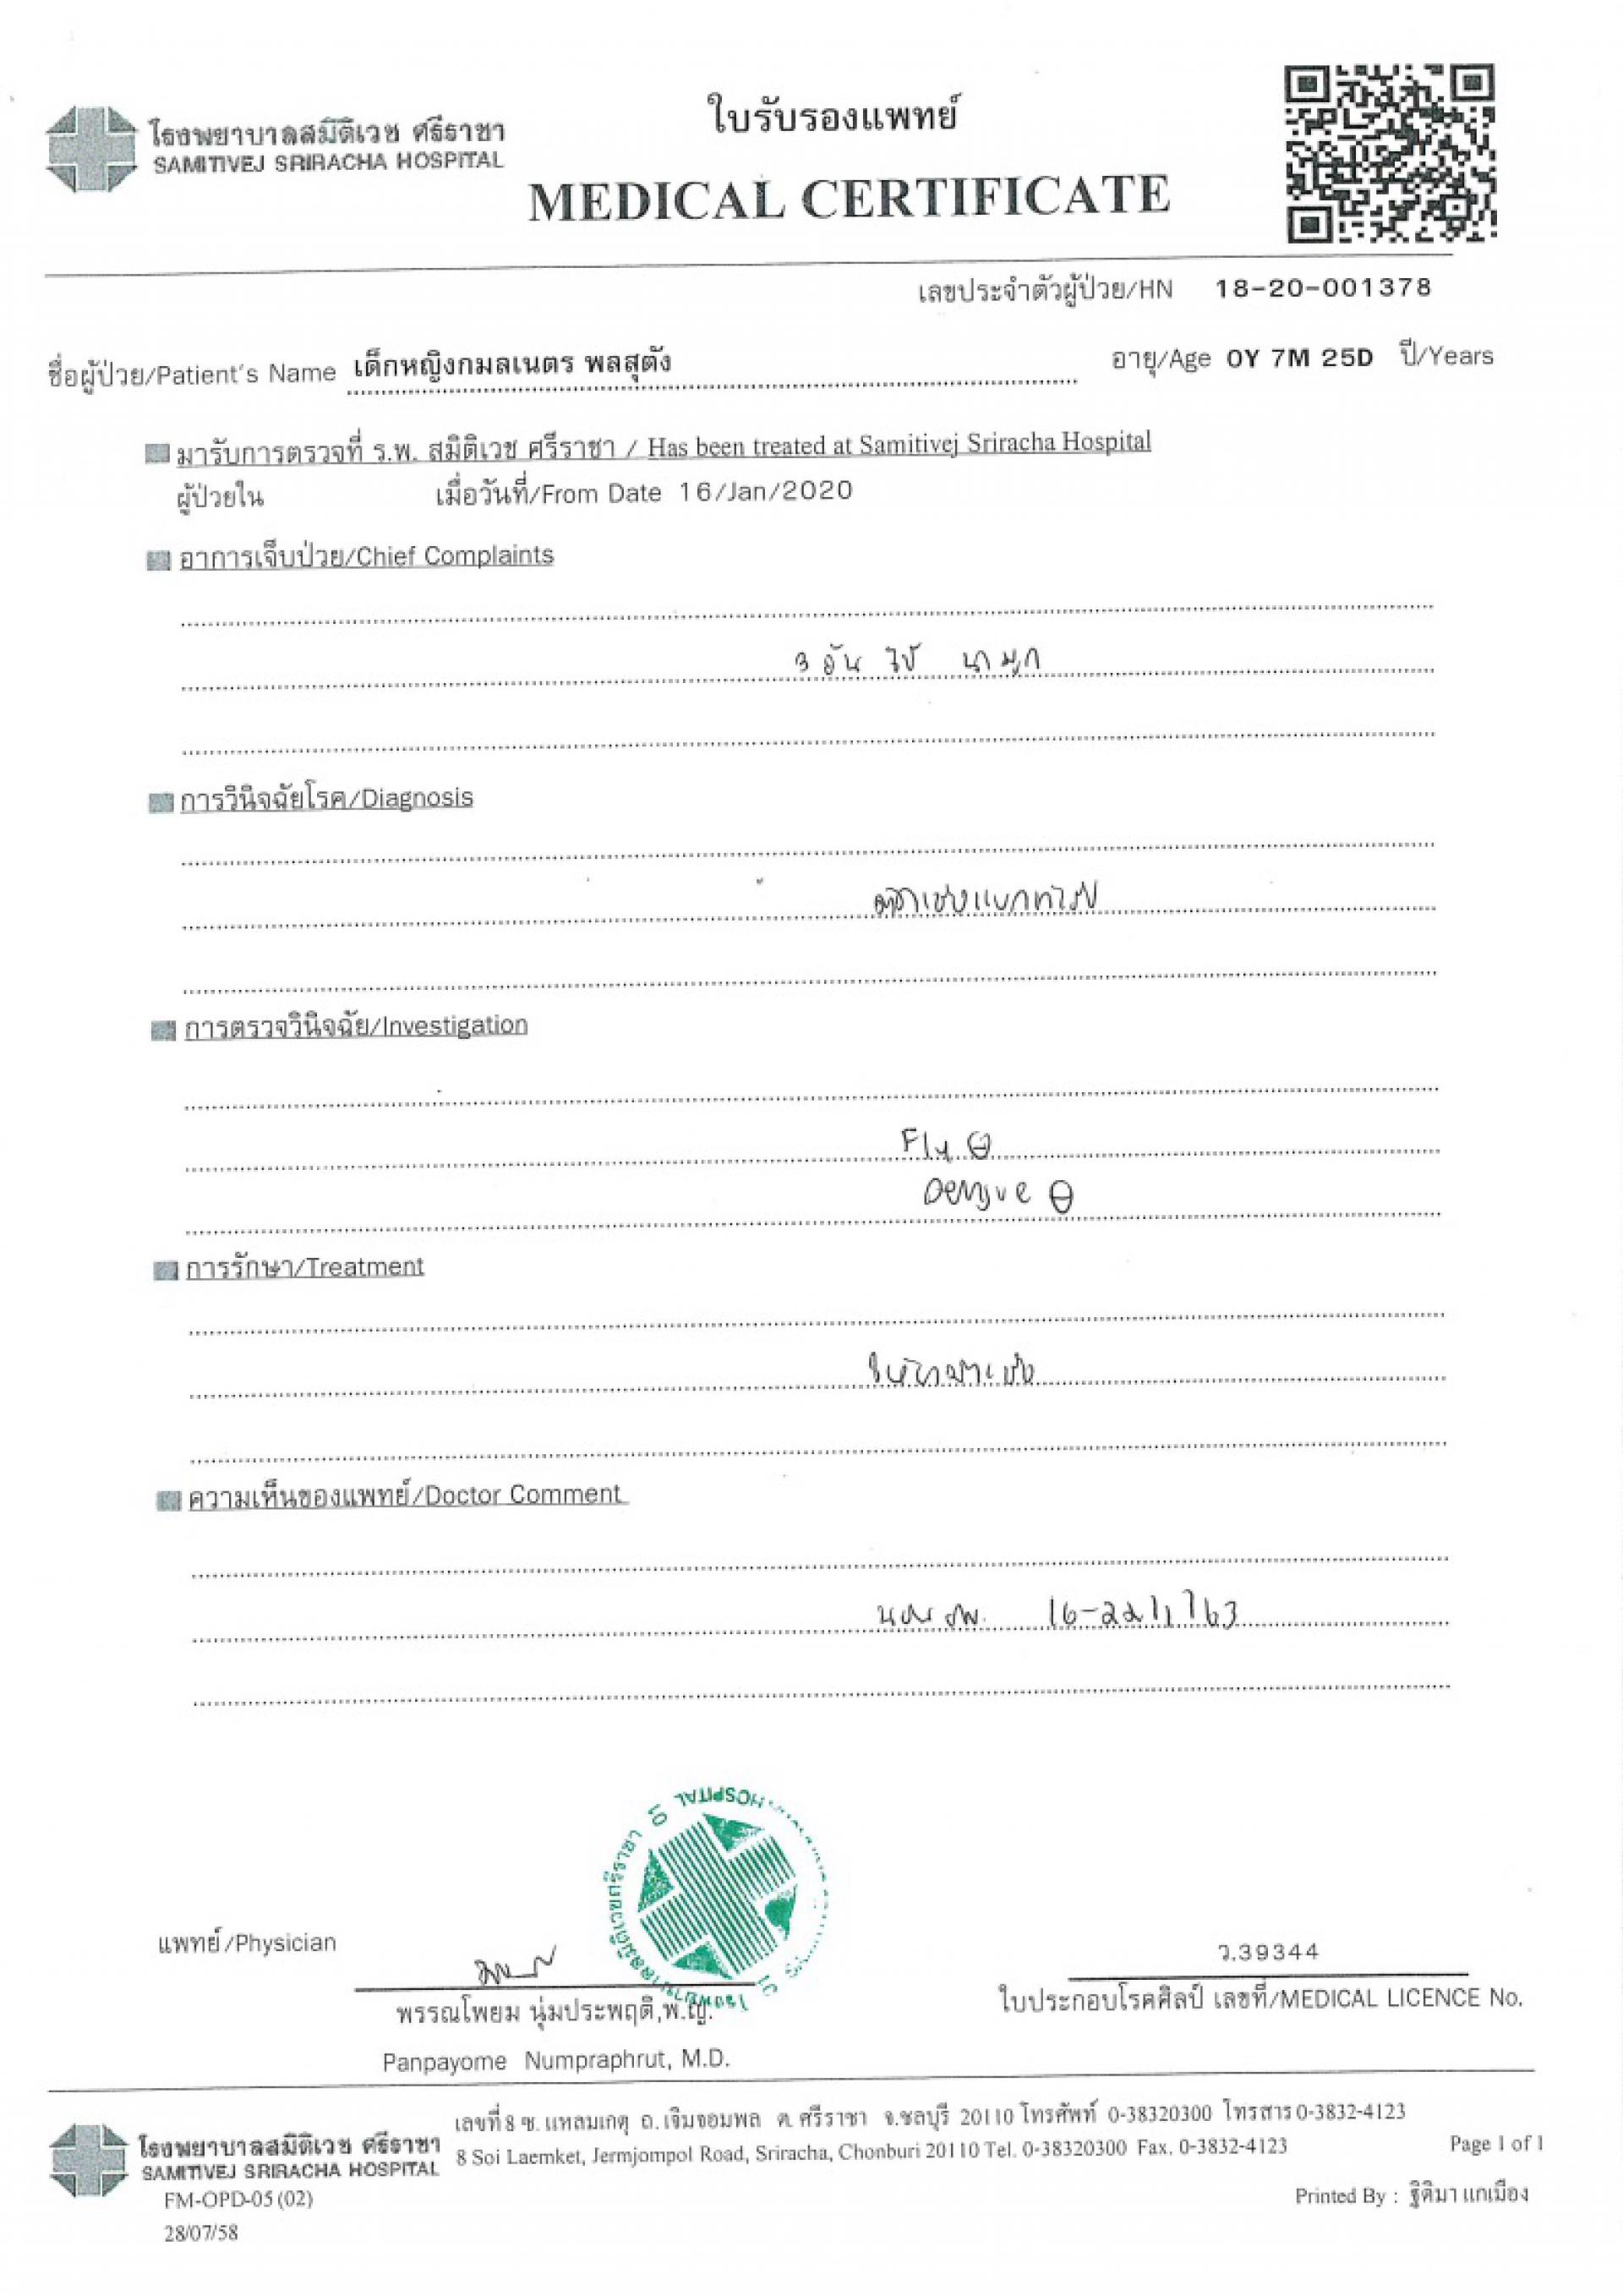 โรงพยาบาลสมิติเวช ศรีราชา
SAMITIVEJ SRIRACHA HOSPITAL
ใบรับรองแพทย์
MEDICAL CERTIFICATE
เลขประจำตัวผู้ป่วย/HN 18-20-001378
ชื่อผู้ป่วย/Patient's Name เด็กหญิงกมลเนตร พลสุตัง อายุ/Age 0Y 7M 25D ปี/Years
มารับการตรวจที่ ร.พ. สมิติเวช ศรีราชา / Has been treated at Samitivej Sriracha Hospital
ผู้ป่วยใน เมื่อวันที่/From Date 16/Jan/2020
อาการเจ็บป่วย/Chief Complaints
3 วัน ไข้ น้ำมูก
การวินิจฉัยโรค/Diagnosis
ติดเชื้อแบคทีเรีย
การตรวจวินิจฉัย/Investigation
Flu ⊖
Dengue ⊖
การรักษา/Treatment
ให้ยาฆ่าเชื้อ
ความเห็นของแพทย์/Doctor Comment
นอน รพ. 16-22/1/63
HOSPITAL
แพทย์/Physician
ว.39344
พรรณโพยม นุ่มประพฤติ,พ.ญ.
ใบประกอบโรคศิลป์ เลขที่/MEDICAL LICENCE No.
Panpayome Numpraphrut, M.D.
โรงพยาบาลสมิติเวช ศรีราชา
SAMITIVEJ SRIRACHA HOSPITAL
เลขที่ 8 ซ. แหลมเกตุ ถ. เจิมจอมพล ต. ศรีราชา จ.ชลบุรี 20110 โทรศัพท์ 0-38320300 โทรสาร 0-3832-4123
8 Soi Laemket, Jermjompol Road, Sriracha, Chonburi 20110 Tel. 0-38320300 Fax. 0-3832-4123
Page 1 of 1
FM-OPD-05 (02)
Printed By : ฐิติมา แกเมือง
28/07/58